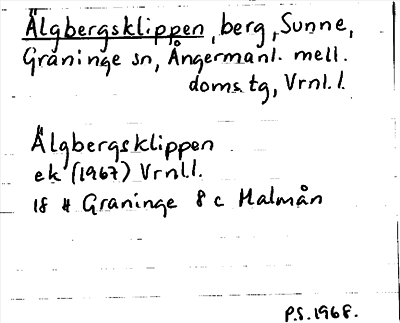 Älgbergsklippen, berg, Sunne,
Graninge sn, Ångermanl. mell.
doms.tg, Vrnl.l.
Älgbergsklippen
ek (1967) Vrnl.l.
18 H Graninge 8 c Malmån
P.S. 1968.